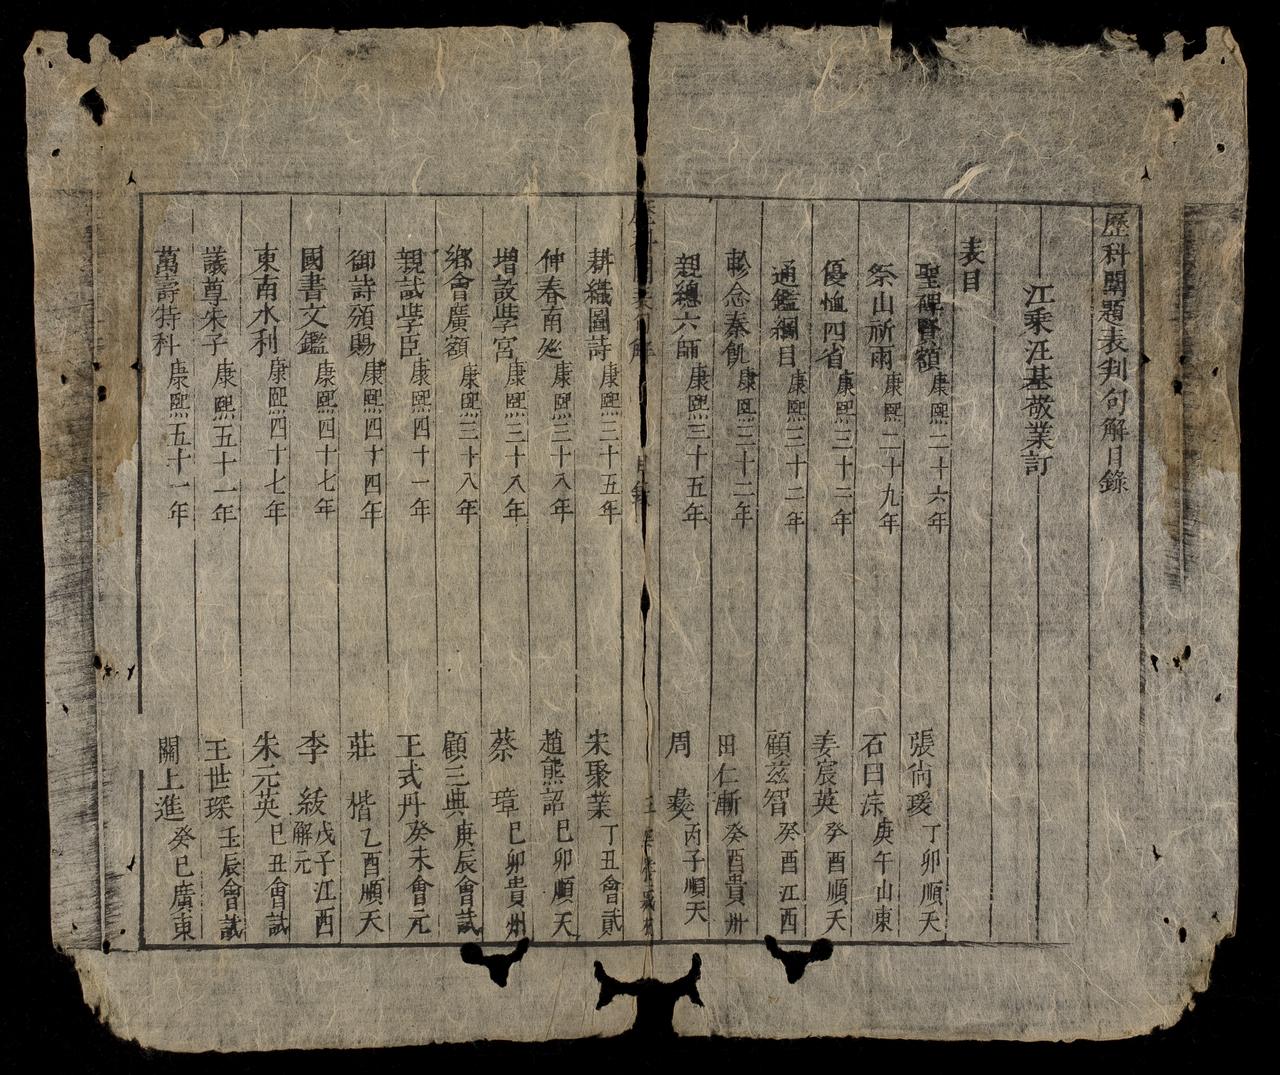 歷科闈題表判句解目錄
江乘汪基敬業訂
表目
聖碑賢額 康熙二十六年 張尙瑗 丁卯順天
祭山祈雨 康熙二十九年 石曰淙 庚午山東
優恤四省 康熙三十二年 姜宸英 癸酉順天
通鑑綱目 康熙三十二年 顧茲智 癸酉江西
軫念秦饑 康熙三十二年 田仁漸 癸酉貴州
親總六師 康熙三十五年 周彝 丙子順天
目錄
耕織圖詩 康熙三十五年 宋聚業 丁丑會試
仲春南廵 康熙三十八年 趙熊詔 巳卯順天
增設學宮 康熙三十八年 蔡璋 巳卯貴州
鄉會廣額 康熙三十八年 顧三典 庚辰會試
親試學臣 康熙四十一年 王式丹 癸未會元
御詩頒賜 康熙四十四年 莊楷 乙酉順天
國書文鑑 康熙四十七年 李紱 戊子江西解元
東南水利 康熙四十七年 朱元英 巳丑會試
議尊朱子 康熙五十一年 王世琛 壬辰會試
萬壽特科 康熙五十一年 關上進 癸巳廣東